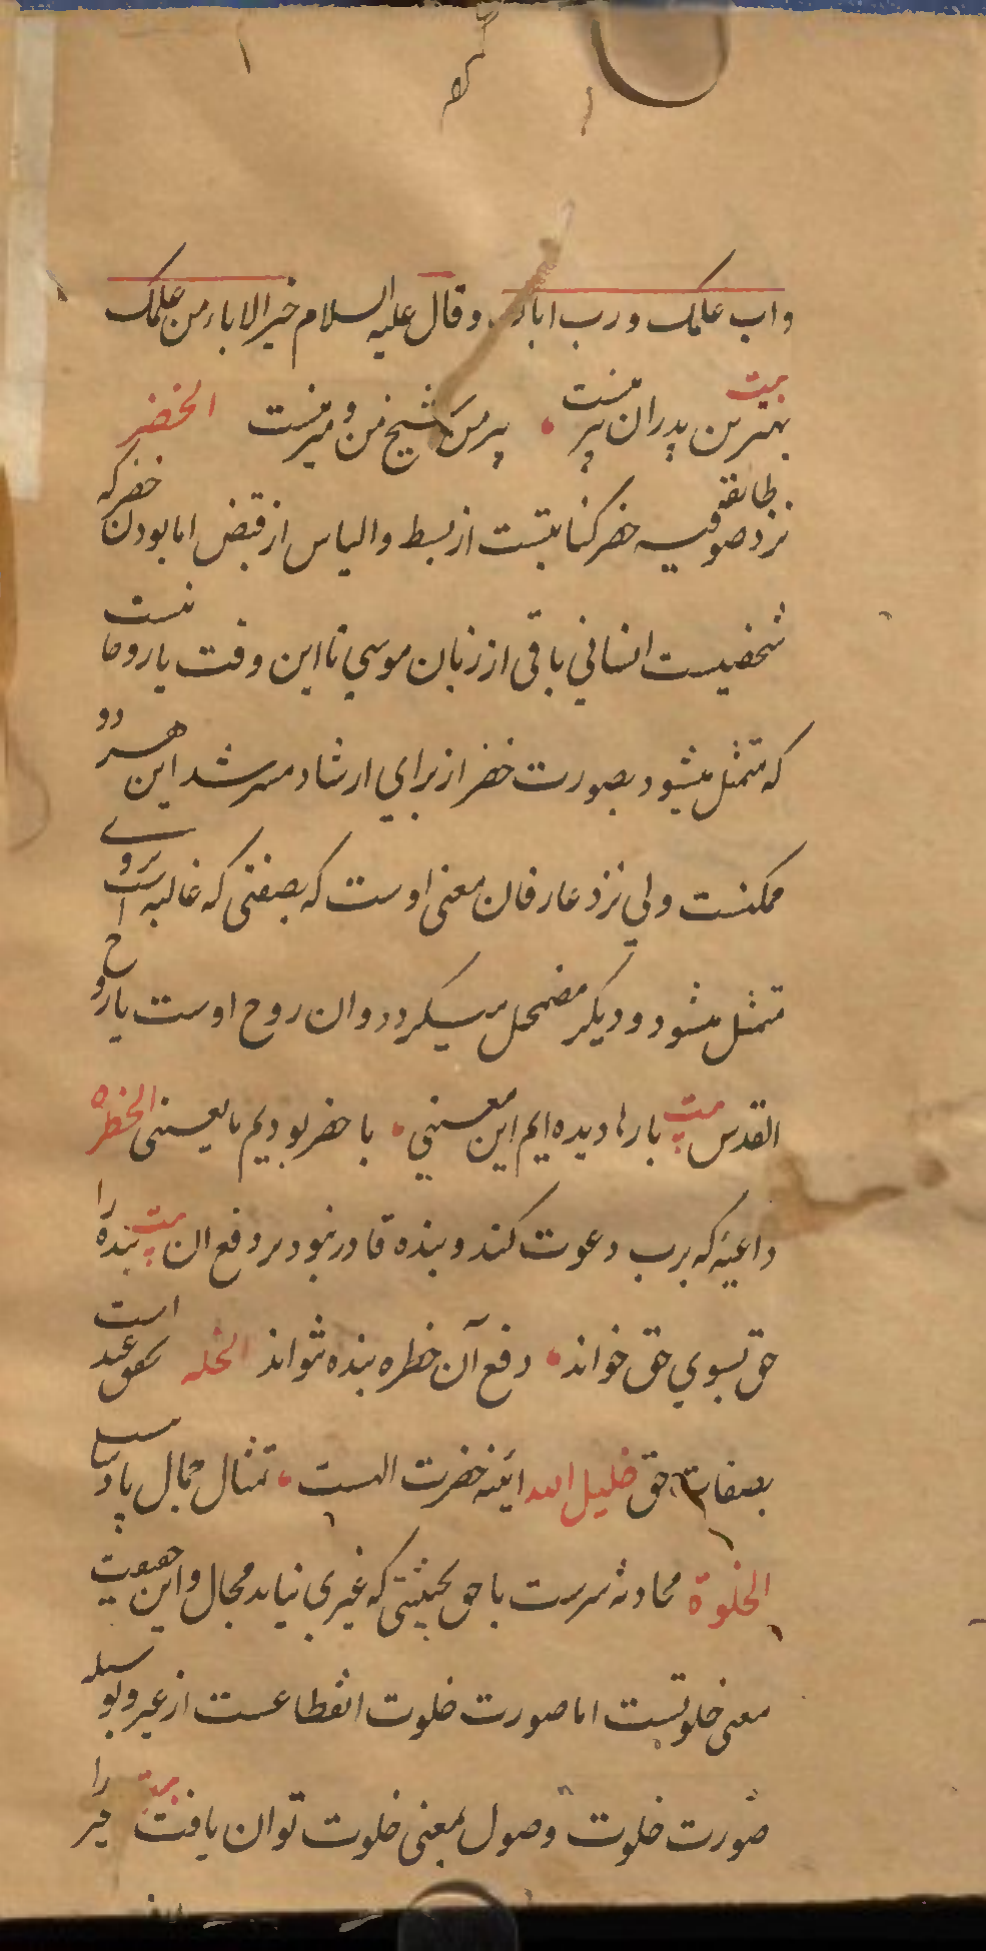 واب علمک ورب اباک وقال علیه السلام خیر الاباء من علمک
بیت بهترین پدران پیر منست • پیر من شیخ من و میر منست الخضر
نزد طایفه صوفیه خضر کنایتست از بسط و الیاس از قبض اما بودن خضر که
شخصیست انسانی باقی از زمان موسی تا این وقت یا روحانیست
که متمثل میشود بصورت خضر از برای ارشاد مسرشد این هر دو
ممکنست ولی نزد عارفان معنی اوست که بصفتی که غالبه است بروی
متمثل میشود و دیگر مضمحل میگردد وان روح اوست یا روح
القدس بیت بارها دیده ایم این معنی • با خضر بودیم ما یعنی الخطره
داعیه که برب دعوت کند و بنده قادر نبود بر دفع ان بیت بنده را
حق بسوی حق خواند • دفع آن خطره بنده نتواند الخله تحقق عبد است
بصفات حق خلیل الله ائینه حضرت الهست • تمثال جمال پادشا
الخلوة محادثه سرست با حق بحیثیتی که غیری نیابد مجال و این حقیقت
معنی خلوتست اما صورت خلوت انقطاعست از غیر و بوسیله
صورت خلوت وصول بمعنی خلوت توان یافت بیت را